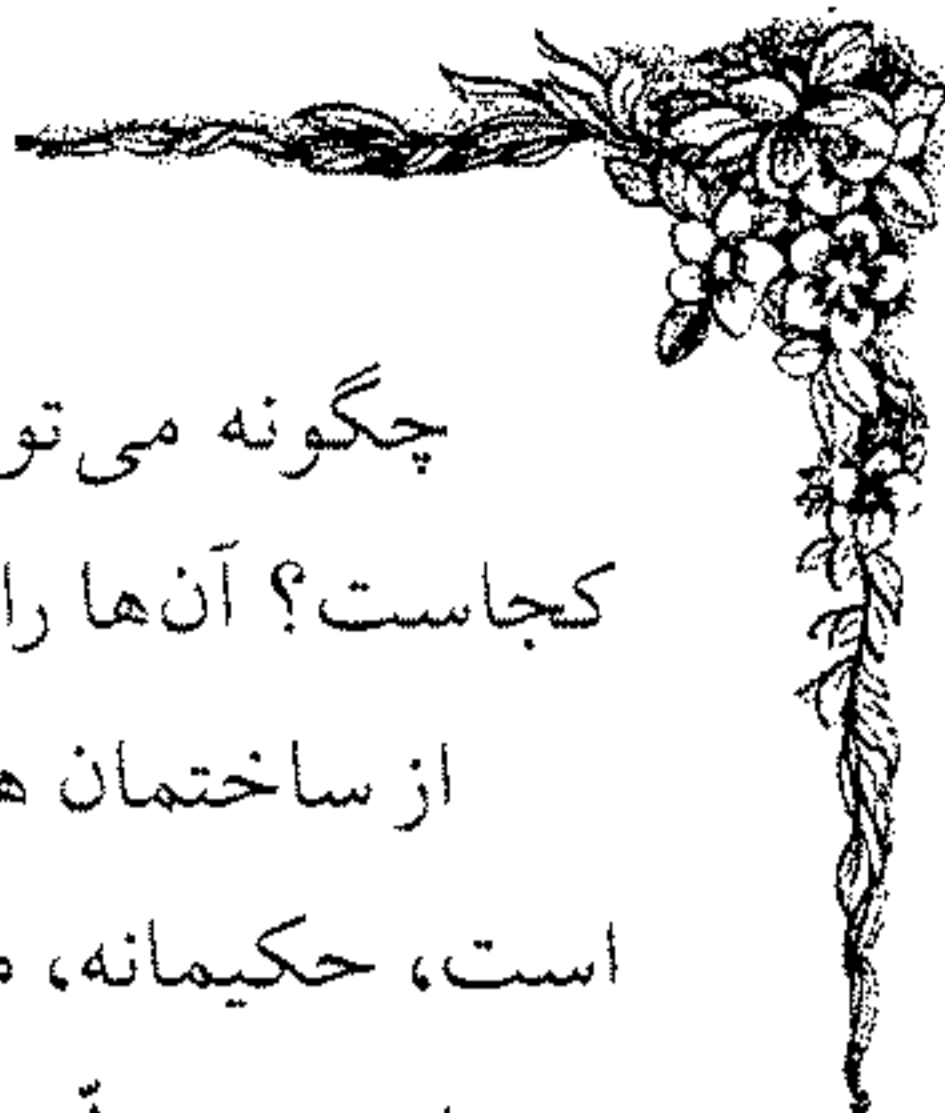 چگونه می‌تو
کجاست؟ آن‌ها را
از ساختمان
است، حکیمانه،